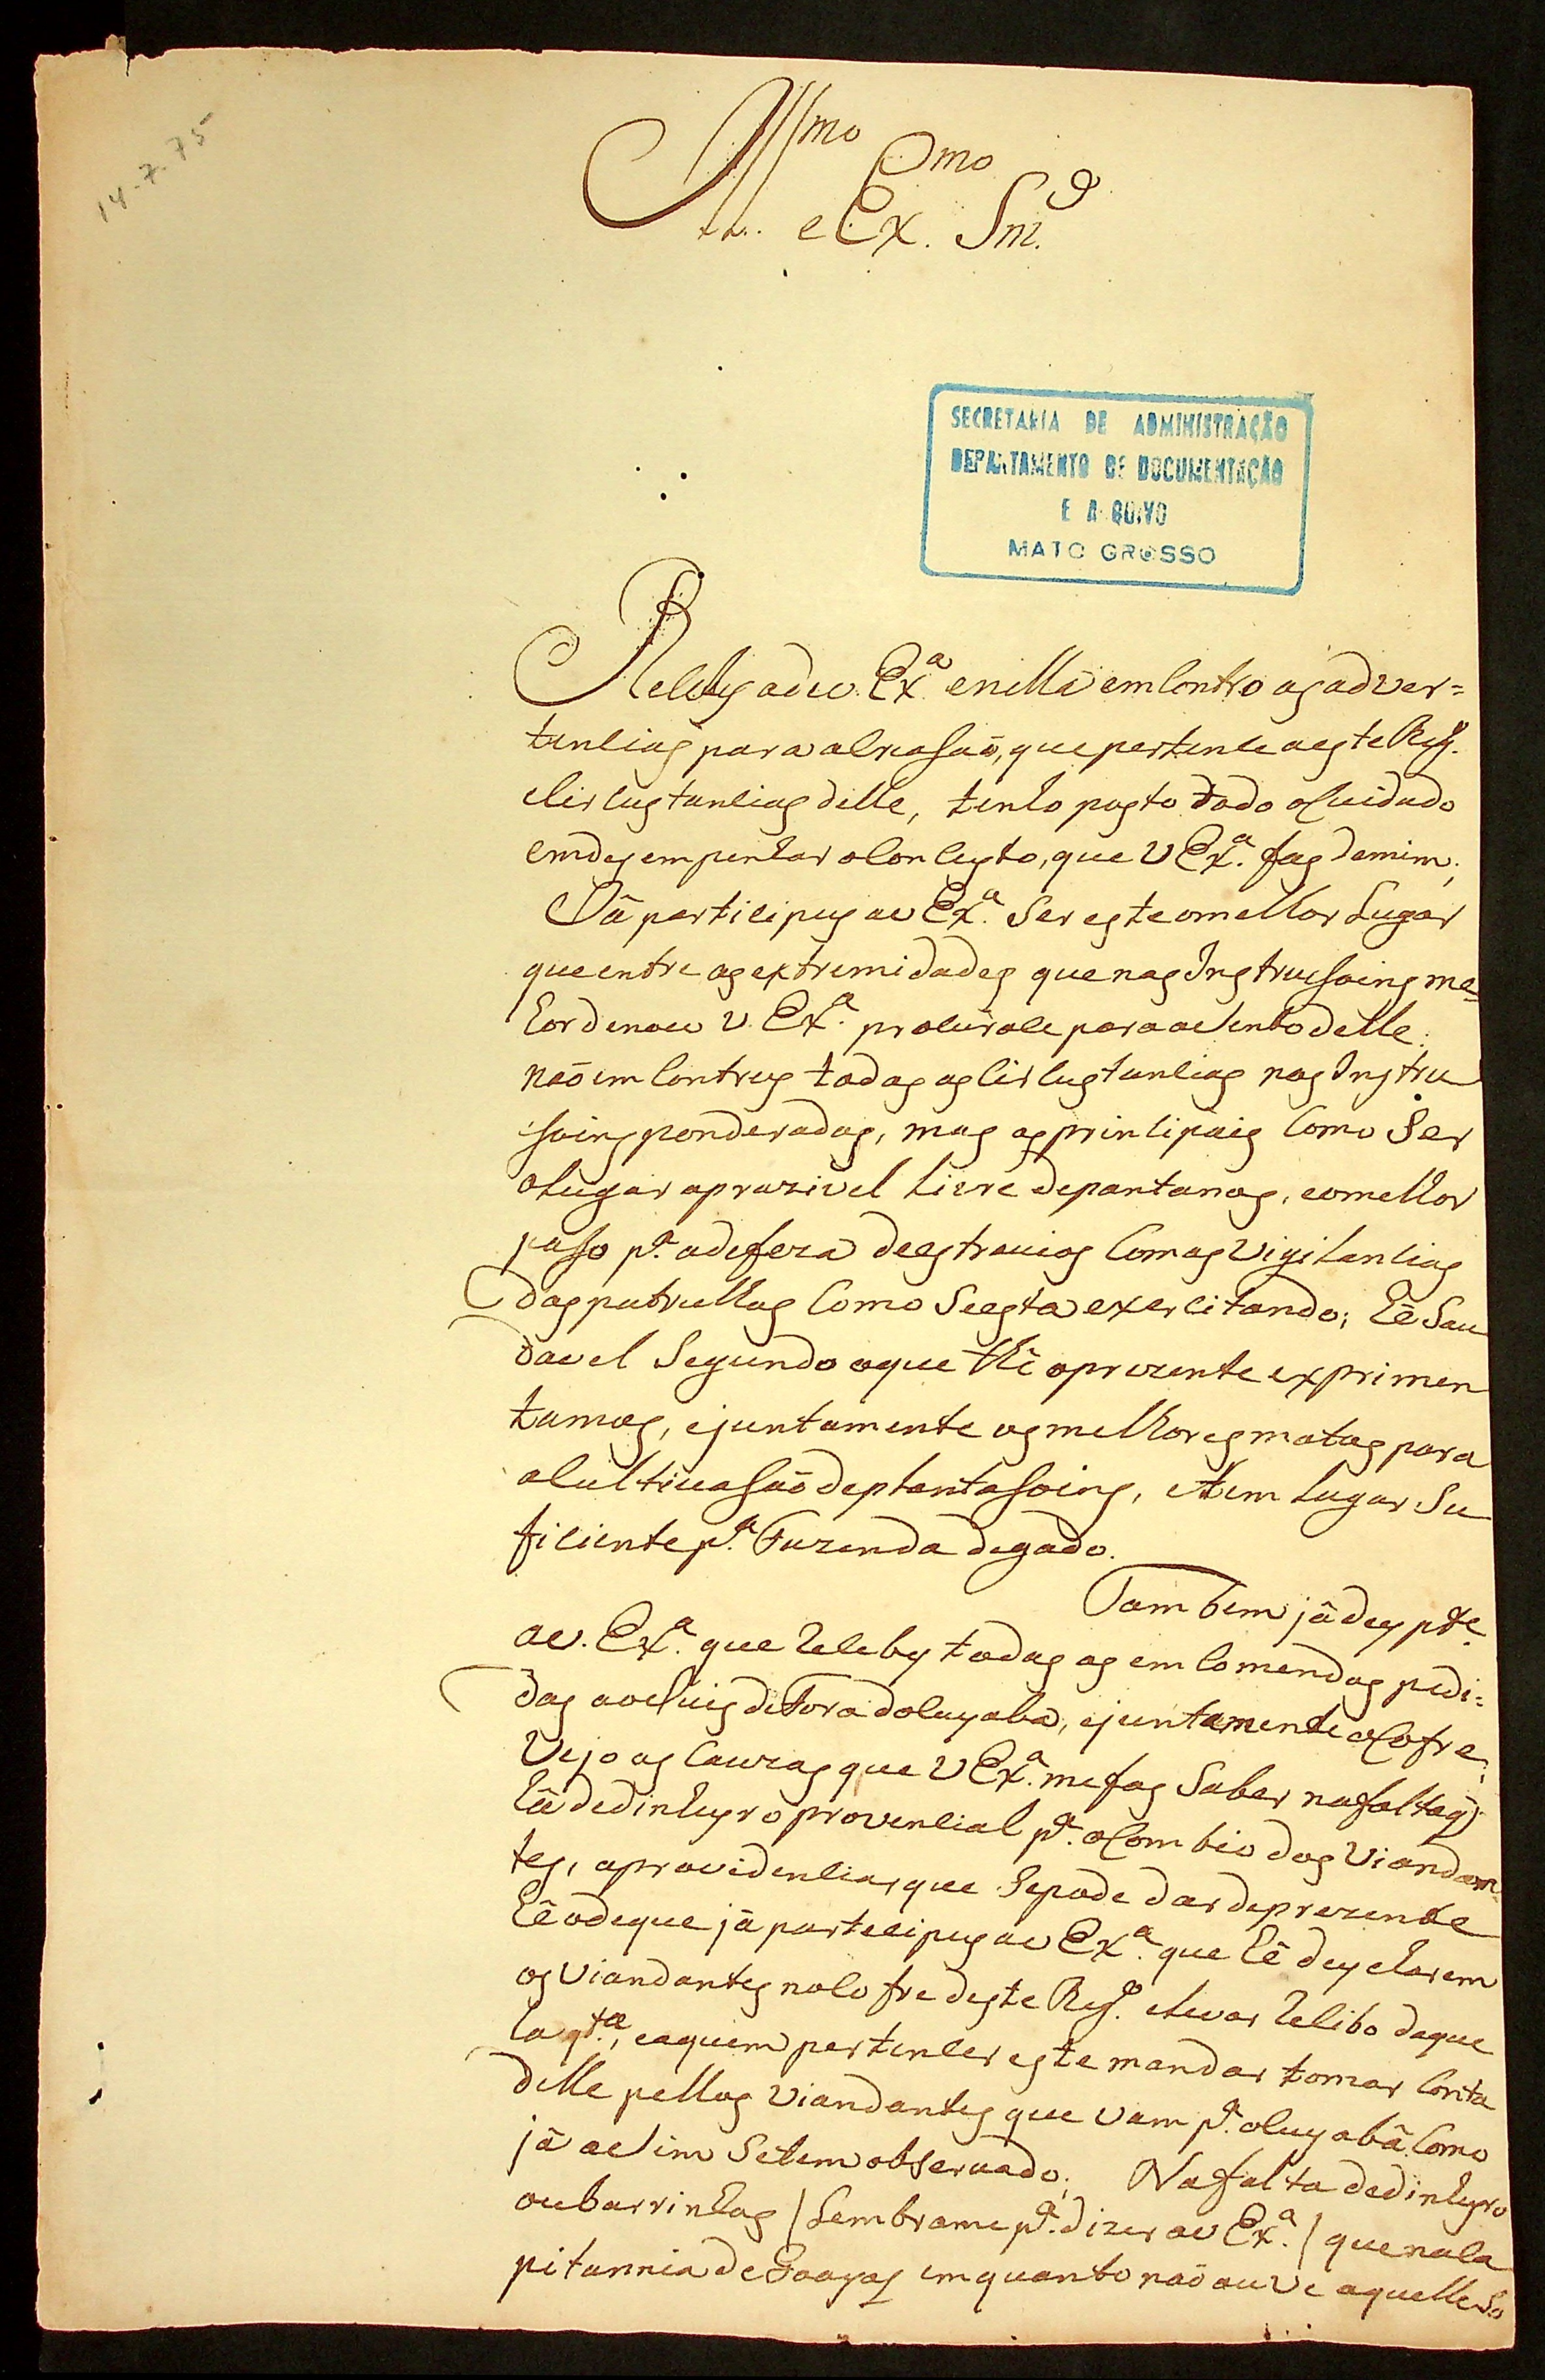 14-7-75
Illmo e Exmo Snr.
SECRETARIA DE ADMINISTRAÇÃO
DEPARTAMENTO DE DOCUMENTAÇÃO
E ARQUIVO
MATO GROSSO
Receby a de v. Exa. e nella emContro as adver=
tencias para a Creasaõ, que pertence a este Rego.
e Circustancias delle, tenho posto todo o Cuidado
em dezempenhar o Conceyto, que V Exa. fas de mim;
Ja partecipey a v Exa. Ser este o melhor Lugar
que entre as extremidades que nas Instrusoins me
hordenou v. Exa. procurace para acento delle.
naõ emContrey todas as Circustancias nas Instru
soins ponderadas, mas as principaes Como Ser
o Lugar aprazivel Livre de pantanos, e o melhor
paso pa. a defeza de estravios Com as Vigilancias
das patrulhas Como Se esta exercitando; hê Sau
davel Segundo o que thê o prezente exprimen
tamos, e juntamente os melhores matos para
a Cultivasaõ de plantasoins, e tem Lugar Su
ficiente pa. Fazenda de gado.
Tambem jâ dey pte.
a v. Exa. que Receby todas as emComendas pedi=
das ao Juis de Fora do Cuyaba, e juntamente o Cofre;
Vejo as Cauzas que V Exa. me fas Saber na falta q.
hâ de dinheyro provencial pa. o Combio dos Viandan
tes, a providencia, que Se pode dar de prezente
hê o de que jâ partecipey a v Exa. que hê deychar em
os Viandantes no Cofre deste Rego. e Levar Recibo da que
la qta., e a quem pertencer este mandar tomar Conta
delle pellos Viandantes que vam pa. o Cuyabâ Como
jâ acim Se tem observado; Na falta de dinheyro
ou barrinhas / Lembrame pa. dizer a v Exa. / que na Ca
pitannia de Goayas emquanto naõ ouve aquelle So